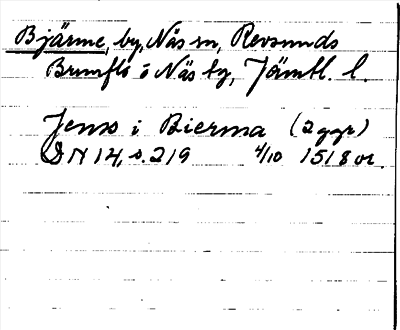 Bjärme, by, Näs sn, Revsunds
Brunflo o Näs tg, Jämtl. l.
Jens i Bierma (2 ggr)
DN 14, s. 219 4/10 1518 or.